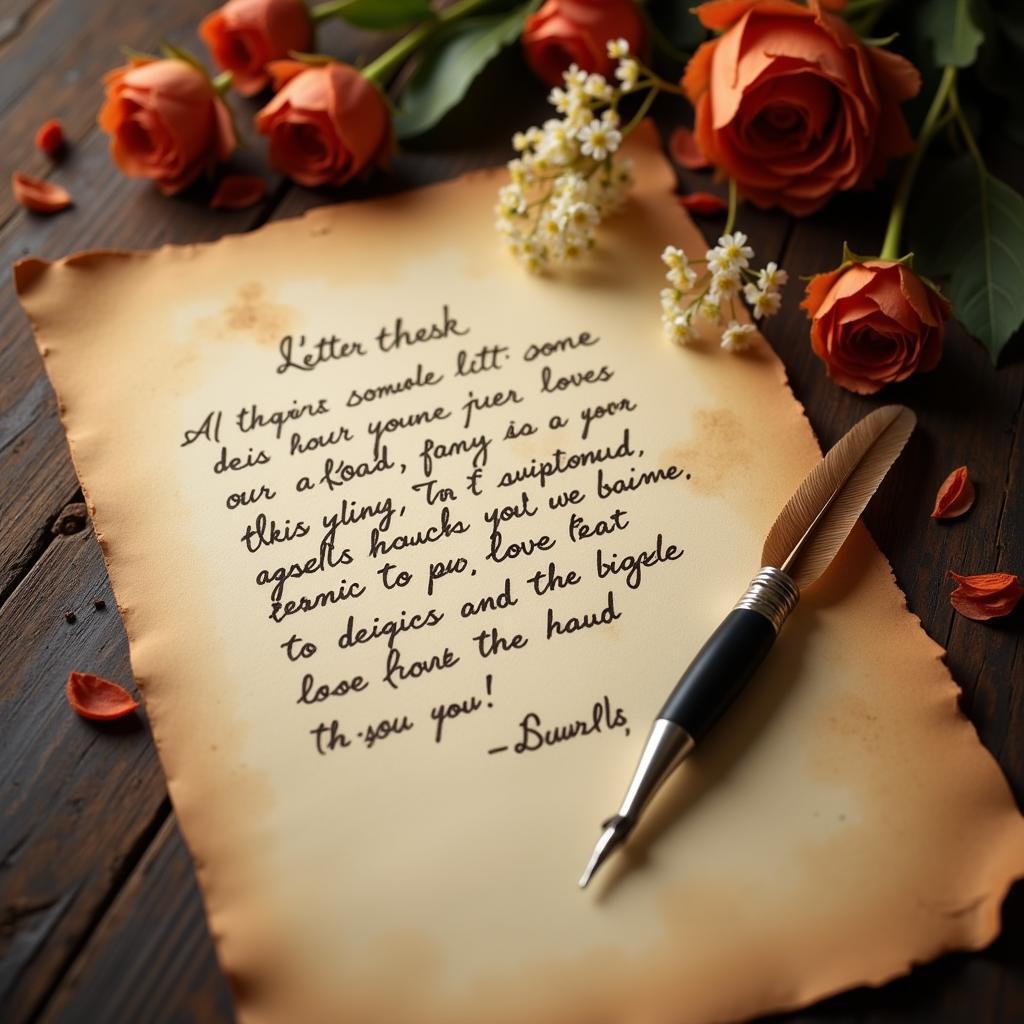 Letter thesk
Al thqirs somule litt. some
deis hour youne juer loves
our a foad, famy is a your
thkis yling, Tor f suiptonud,
agsells haucks you we baime.
ternic to po, love feat
to deigics and the bigale
lose frovt the haud
th.sou you!
– Buurlls,